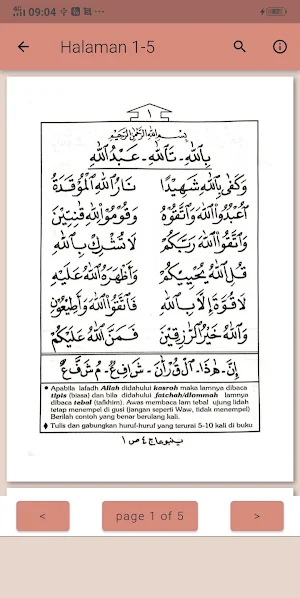 09:04
Halaman 1-5
١
بِسْمِ اللهِ الرَّحْمٰنِ الرَّحِيْمِ
بِاللّٰهِ - تَاللّٰهِ - عَبْدُ اللّٰهِ
وَكَفٰى بِاللّٰهِ شَهِيْدًا نَارُ اللّٰهِ الْمُوْقَدَةُ
اُعْبُدُوا اللّٰهَ وَاتَّقُوْهُ وَقُوْمُوْا لِلّٰهِ قٰنِتِيْنَ
وَاتَّقُوا اللّٰهَ رَبَّكُمْ لَا تُشْرِكْ بِاللّٰهِ
قُلِ اللّٰهُ يُحْيِيْكُمْ وَاَظْهَرَهُ اللّٰهُ عَلَيْهِ
لَا قُوَّةَ اِلَّا بِاللّٰهِ فَاتَّقُوا اللّٰهَ وَاَطِيْعُوْنِ
وَاللّٰهُ خَيْرُ الرّٰزِقِيْنَ فَمَنَّ اللّٰهُ عَلَيْكُمْ
اِنَّ - هٰذَا - الْقُرْاٰنَ - شَافِعٌ - مُشَفَّعٌ
● Apabila lafadh Allah didahului kasroh maka lamnya dibaca
tipis (biaaa) dan bila didahului fatchah/dlommah lamnya
dibaca tebal (tafkhim). Awas membaca lam tebal ujung lidah
tetap menempel di gusi (jangan seperti Waw, tidak menempel)
Berilah contoh yang benar berulang kali.
♦ Tulis dan gabungkan huruf-huruf yang terurai 5-10 kali di buku
٤ ص ١
<
page 1 of 5
>